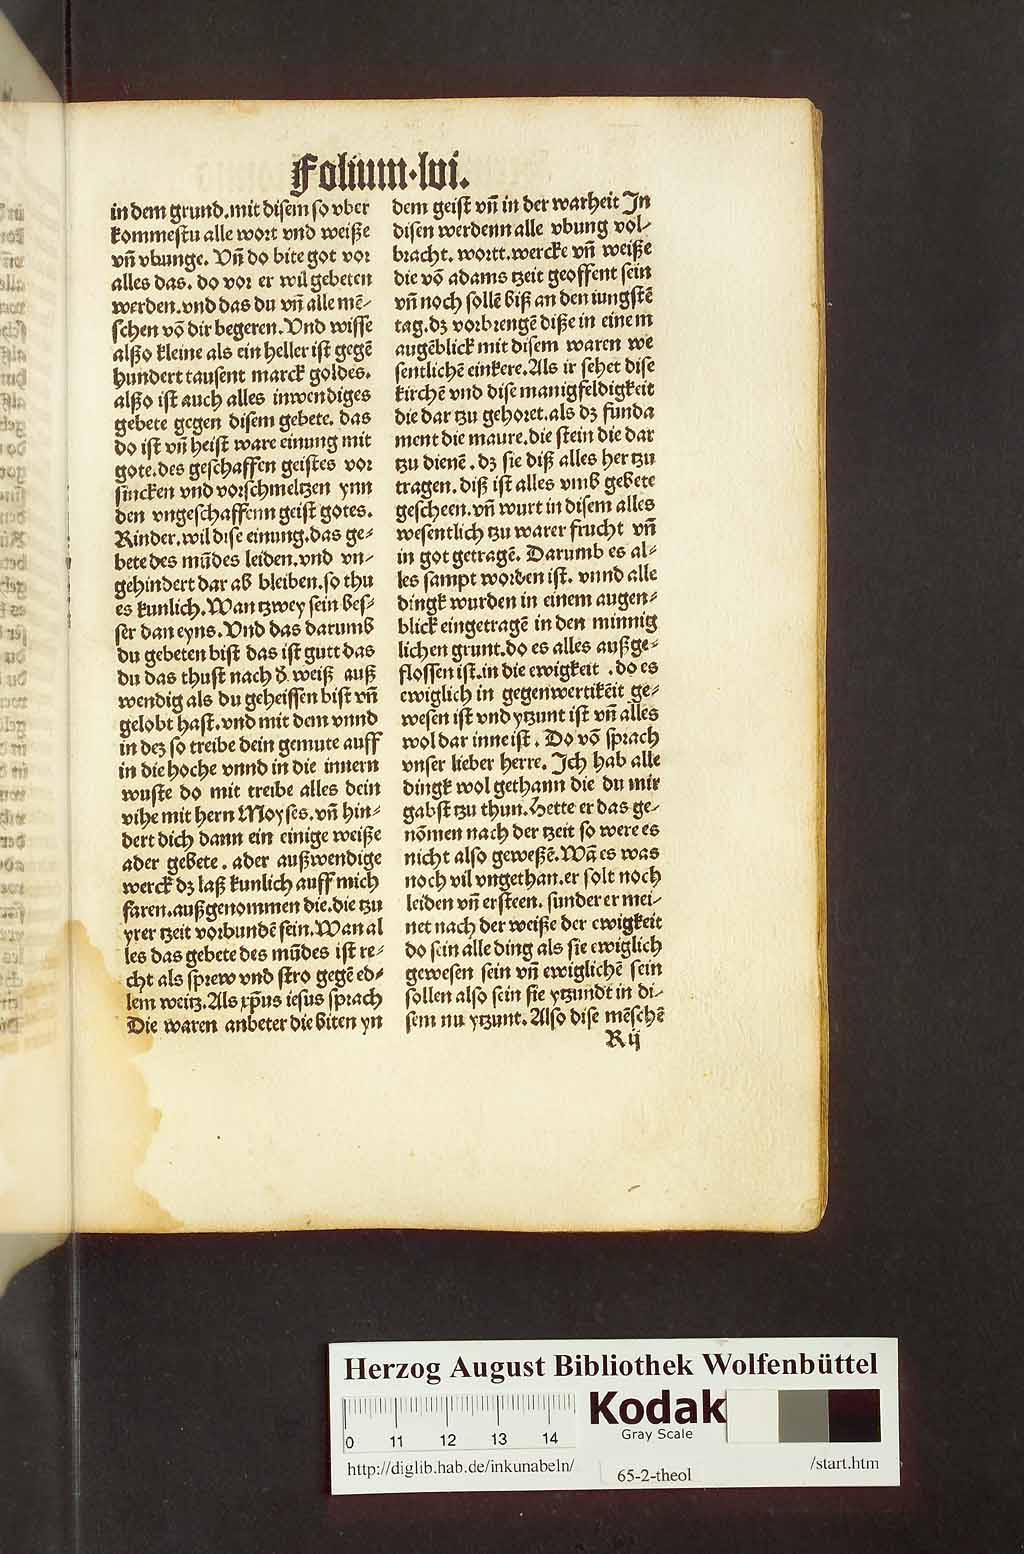 Folium·lvi.
in dem grund.mit disem so vber
kommestu alle wort vnd weiße
vn̄ vbunge. Vn̄ do bite got vor
alles das. do vor er wil gebeten
werden.vnd das du vn̄ alle mē⸗
schen vō dir begeren.Vnd wisse
alßo kleine als ein heller ist gegē
hundert tausent marck goldes.
alßo ist auch alles inwendiges
gebete gegen disem gebete. das
do ist vn̄ heist ware einung mit
gote.des geschaffen geistes vor
sincken vnd vorschmeltzen ynn
den vngeschaffenn geist gotes.
Kinder.wil dise einung.das ge⸗
bete des mūdes leiden.vnd vn⸗
gehindert dar ab bleiben.so thu
es kunlich.Wan tzwey sein bes⸗
ser dan eyns.Vnd das darumb
du gebeten bist das ist gutt das
du das thust nach d̕ weiß auß
wendig als du geheissen bist vn̄
gelobt hast.vnd mit dem vnnd
in dez so treibe dein gemute auff
in die hoche vnnd in die innern
wuste do mit treibe alles dein
vihe mit hern Moyses.vn̄ hin⸗
dert dich dann ein einige weiße
ader gebete. ader außwendige
werck dz laß kunlich auff mich
faren.außgenommen die.die tzu
yrer tzeit vorbundē sein.Wan al
les das gebete des mūdes ist re⸗
cht als sprew vnd stro gegē ed⸗
lem weitz.Als xp̄us iesus sprach
Die waren anbeter die biten yn
dem geist vn̄ in der warheit Jn
disen werdenn alle vbung vol⸗
bracht. wortt.wercke vn̄ weiße
die vō adams tzeit geoffent sein
vn̄ noch sollē biß an den iungstē
tag.dz vorbrengē diße in einem
augēblick mit disem waren we
sentlichē einkere.Als ir sehet dise
kirchē vnd dise manigfeldigkeit
die dar tzu gehoret.als dz funda
ment die maure.die stein die dar
tzu dienē. dz sie diß alles her tzu
tragen. diß ist alles vmb gebete
gescheen.vn̄ wurt in disem alles
wesentlich tzu warer frucht vn̄
in got getragē. Darumb es al⸗
les sampt worden ist. vnnd alle
dingk wurden in einem augen⸗
blick eingetragē in den minnig
lichen grunt.do es alles außge⸗
flossen ist.in die ewigkeit .do es
ewiglich in gegenwertikēit ge⸗
wesen ist vnd ytzunt ist vn̄ alles
wol dar inne ist. Do vō sprach
vnser lieber herre. Jch hab alle
dingk wol gethann die du mir
gabst tzu thun.Hette er das ge⸗
nōmen nach der tzeit so were es
nicht also geweßē.Wā es was
noch vil vngethan.er solt noch
leiden vn̄ ersteen. sunder er mei⸗
net nach der weiße der ewigkeit
do sein alle ding als sie ewiglich
gewesen sein vn̄ ewiglichē sein
sollen also sein sie ytzundt in di⸗
sem nu ytzunt. Also dise mēschē
Kij
Herzog August Bibliothek Wolfenbüttel
0 11 12 13 14
Kodak
Gray Scale
http://diglib.hab.de/inkunabeln/
65-2-theol
/start.htm